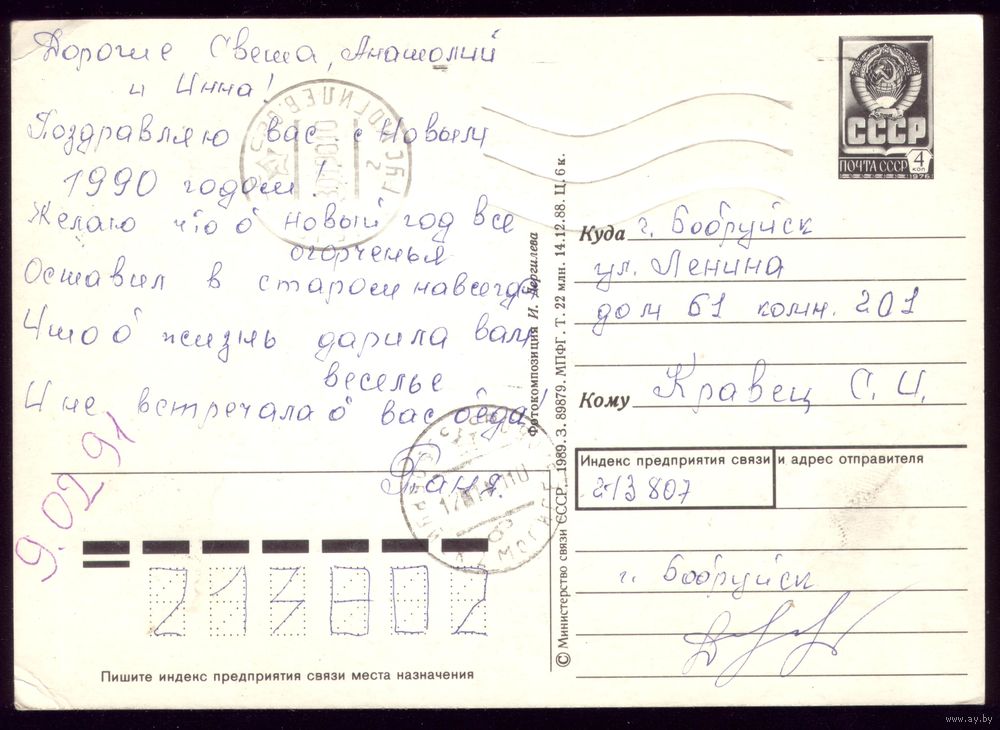 Дорогие Света, Анатолий
и Инна!
Поздравляю вас с Новым
1990 годом!
Желаю что б новый год все
огорченья
Оставил в старом навсегда
Что б жизнь дарила вам
веселье
И не встречала б вас беда
9.02 91
Пишите индекс предприятия связи места назначения
213807
© Министерство связи СССР. 1989. З. 89879. МПФГ. Т. 22 млн. 14.12.88. Ц. 6 к.
Фотокомпозиция И. Дергилева
СССР
ПОЧТА СССР 4 коп
1976
Куда г. Бобруйск
ул. Ленина
дом 61 комн. 201
Кому Кравец С. И.
Индекс предприятия связи и адрес отправителя
213807
г. Бобруйск
www.ay.by